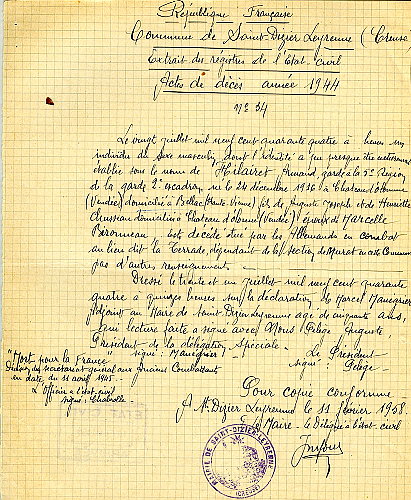 République Française
Commune de Saint-Dizier Leyrenne (Creuse)
Extrait des registres de l'Etat-civil
Actes de décès année 1944
N° 34
Le vingt juillet mil neuf cent quarante quatre à heures un
individu de sexe masculin, dont l'identité a pu presque être
établie sous le nom de "Hilairet Armand, garde à la 5e Région
de la garde 2e escadron, né le 24 décembre 1916 à Chateau d'Olonne
(Vendée) domicilié à Bellac (Haute-Vienne) fils de Auguste Joseph et de Henriette
domicilié à Chateau d'Olonne (Vendée) époux de Marcelle
Bironneau est décédé tué par les Allemands en combat
au lieu dit la Terrade, dépendant de la section de Murat notre Commune
pas d'autres renseignements.
Dressé le trente et un juillet mil neuf cent quarante
quatre à quinze heures sur la déclaration de Marcel
Adjoint au Maire de Saint-Dizier Leyrenne âgé de cinquante ans,
qui lecture faite a signé avec Nous Auguste
Président de la délégation spéciale -
signé : Le Président
signé :
"Mort pour la France"
Décision du secrétariat général aux Anciens Combattants
en date du 11 avril 1945 -
L'Officier de l'état-civil
signé :
Pour copie conforme
A St Dizier Leyrenne le 11 février 1958
Le Maire - Le Délégué à l'état-civil
MAIRIE DE SAINT-DIZIER-LEYRENNE
(CREUSE)